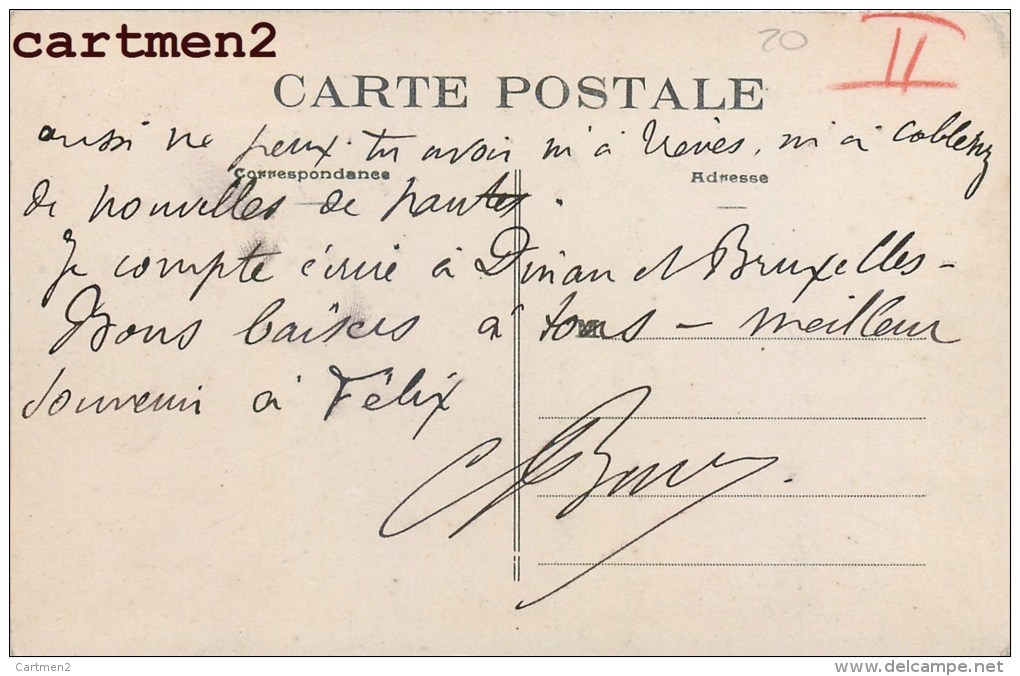 cartmen2
20
II
CARTE POSTALE
aussi ne peux-tu avoir ni à Trèves, ni à Coblenz
Correspondance
Adresse
de nouvelles de
Je compte écrire à Dinan et Bruxelles -
Bons baisers à tous - meilleur
souvenir à Félix
Cartmen2
http://www.delcampe.net